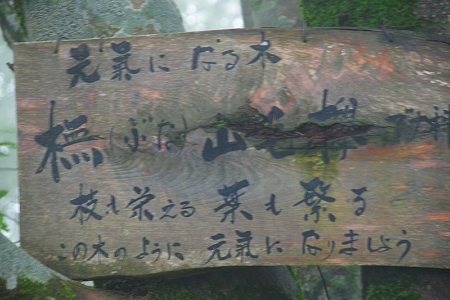 元氣になる木
橅(ぶな) 山毛欅
枝も栄える 葉も繁る
この木のように 元氣に なりましょう